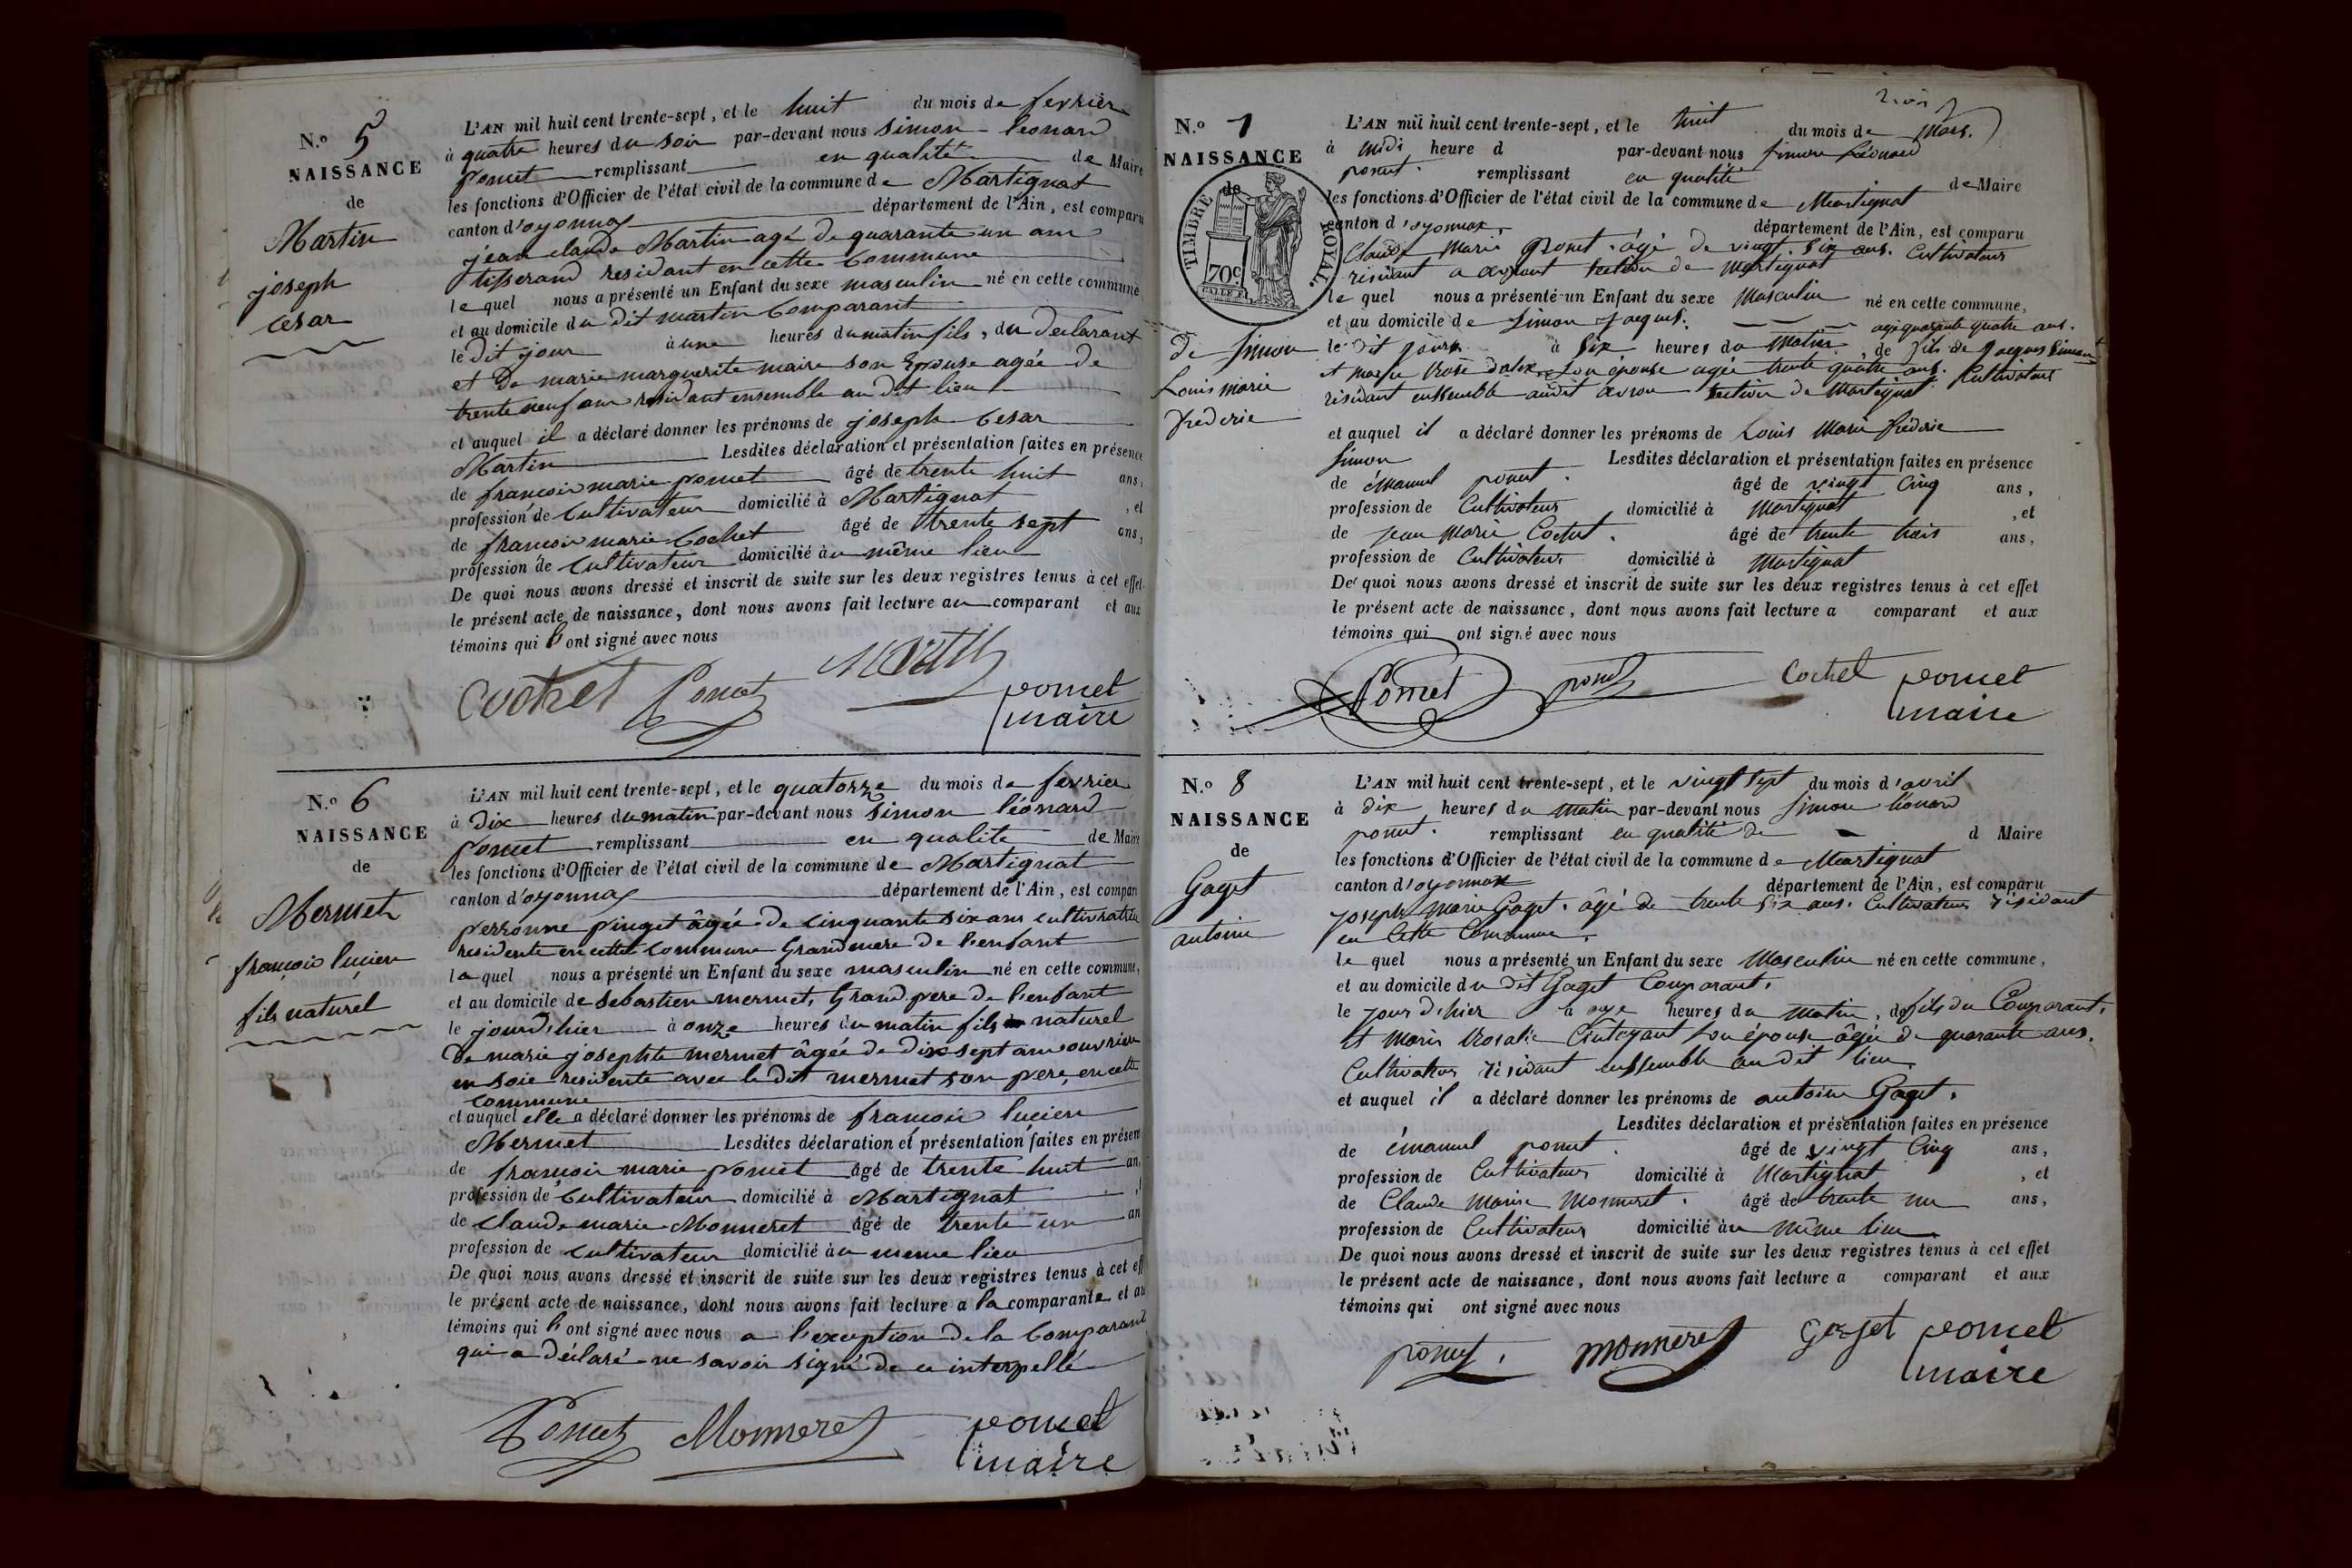 N.o 5
NAISSANCE
de
Martin
joseph
cesar
L'AN mil huit cent trente-sept, et le huit du mois de fevrier
à quatre heures du soir par-devant nous simon leonard
pomet remplissant en qualité de Maire
les fonctions d'Officier de l'état civil de la commune de Martignat
canton d'oyonnax département de l'Ain, est comparu
jean claude Martin agé de quarante un ans
tisserand residant en cette commune
lequel nous a présenté un Enfant du sexe masculin né en cette commune
et au domicile du dit martin Comparant
le dit jour à une heures du matin fils, du declarant
et de marie marguerite maire son Epouse agée de
trente neuf ans residant ensemble au dit lieu
et auquel il a déclaré donner les prénoms de joseph Cesar
Martin Lesdites déclaration et présentation faites en présence
de francois marie pomet âgé de trente huit ans,
profession de Cultivateur domicilié à Martignat, et
de francois marie Cochet âgé de trente sept ans,
profession de cultivateur domicilié au même lieu
De quoi nous avons dressé et inscrit de suite sur les deux registres tenus à cet effet
le présent acte de naissance, dont nous avons fait lecture au comparant et aux
témoins qui l'ont signé avec nous
Cochet Pomet
pomet
maire
N.o 6
NAISSANCE
de
Mermet
françois lucien
fils naturel
L'AN mil huit cent trente-sept, et le quatorze du mois de fevrier
à Dix heures du matin par-devant nous simon léonard
Pomet remplissant en qualite de Maire
les fonctions d'Officier de l'état civil de la commune de Martignat
canton d'oyonnax département de l'Ain, est compar
perronne pinget âgée de cinquante six ans cultivatrice
residente en cette commune Grand mere de l'enfant
laquel nous a présenté un Enfant du sexe masculin né en cette commune,
et au domicile de sebastien mermet, Grand pere de l'enfant
le jour d'hier à onze heures du matin fils naturel
de marie josephte mermet âgée de dix sept ans ouvriere
en soie residente avec le dit mermet son pere, en cette
commune
et auquel elle a déclaré donner les prénoms de francois lucien
Mermet Lesdites déclaration et présentation faites en présen
de francois marie pomet âgé de trente huit an
profession de Cultivateur domicilié à Martignat
de claude marie Monneret âgé de trente un an
profession de cultivateur domicilié au meme lieu
De quoi nous avons dressé et inscrit de suite sur les deux registres tenus à cet eff
le présent acte de naissance, dont nous avons fait lecture a la comparante et au
témoins qui l'ont signé avec nous a l'exception de la Comparant
qui a déclaré ne savoir signé de ce interpellé
Pomet Monneret pomet
maire
N.o 7
NAISSANCE
de
TIMBRE ROYAL.
70c.
de Simon
Louis marie
frédéric
L'AN mil huit cent trente-sept, et le huit du mois de Mars.
à midi heure d par-devant nous Simon Léonard
pomet. remplissant en qualité de Maire
les fonctions d'Officier de l'état civil de la commune de Martignat
canton d'oyonnax, département de l'Ain, est comparu
Claude Marie pomet. âgé de vingt six ans. Cultivateur
résidant a section de Martignat
lequel nous a présenté un Enfant du sexe Masculin né en cette commune,
et au domicile de Simon Jacques. agé quarante quatre ans.
le dit jour à Six heures du Matin, de fils de Jacques Simon
et Marie Rose son épouse agée trente quatre ans. Cultivateurs
résidant ensemble audit section de Martignat
et auquel il a déclaré donner les prénoms de Louis Marie frédéric
Simon Lesdites déclaration et présentation faites en présence
de émanuel pomet. âgé de vingt Cinq ans,
profession de Cultivateur domicilié à Martignat, et
de Jean Marie Cochet. âgé de trente trois ans,
profession de Cultivateur domicilié à Martignat
De quoi nous avons dressé et inscrit de suite sur les deux registres tenus à cet effet
le présent acte de naissance, dont nous avons fait lecture a comparant et aux
témoins qui ont signé avec nous
Pomet pomet Cochet pomet
maire
N.o 8
NAISSANCE
de
Gaget
antoine
L'AN mil huit cent trente-sept, et le vingt sept du mois d'avril
à dix heures du matin par-devant nous Simon léonard
pomet. remplissant en qualité de d Maire
les fonctions d'Officier de l'état civil de la commune de Martignat
canton d'oyonnax département de l'Ain, est comparu
Joseph Marie Gaget. âgé de trente Six ans. Cultivateur résidant
en Cette Commune.
lequel nous a présenté un Enfant du sexe Masculin né en cette commune,
et au domicile du dit Gaget Comparant.
le jour d'hier à onze heures du matin, de fils du Comparant.
Et Marie Rosalie son épouse âgée de quarante ans.
Cultivateur résidant ensemble au dit lieu
et auquel il a déclaré donner les prénoms de antoine Gaget.
Lesdites déclaration et présentation faites en présence
de émanuel pomet. âgé de vingt Cinq ans,
profession de Cultivateur domicilié à Martignat, et
de Claude Marie Monneret. âgé de trente un ans,
profession de Cultivateur domicilié au même lieu
De quoi nous avons dressé et inscrit de suite sur les deux registres tenus à cet effet
le présent acte de naissance, dont nous avons fait lecture a comparant et aux
témoins qui ont signé avec nous
pomet. monneret Gaget pomet
maire